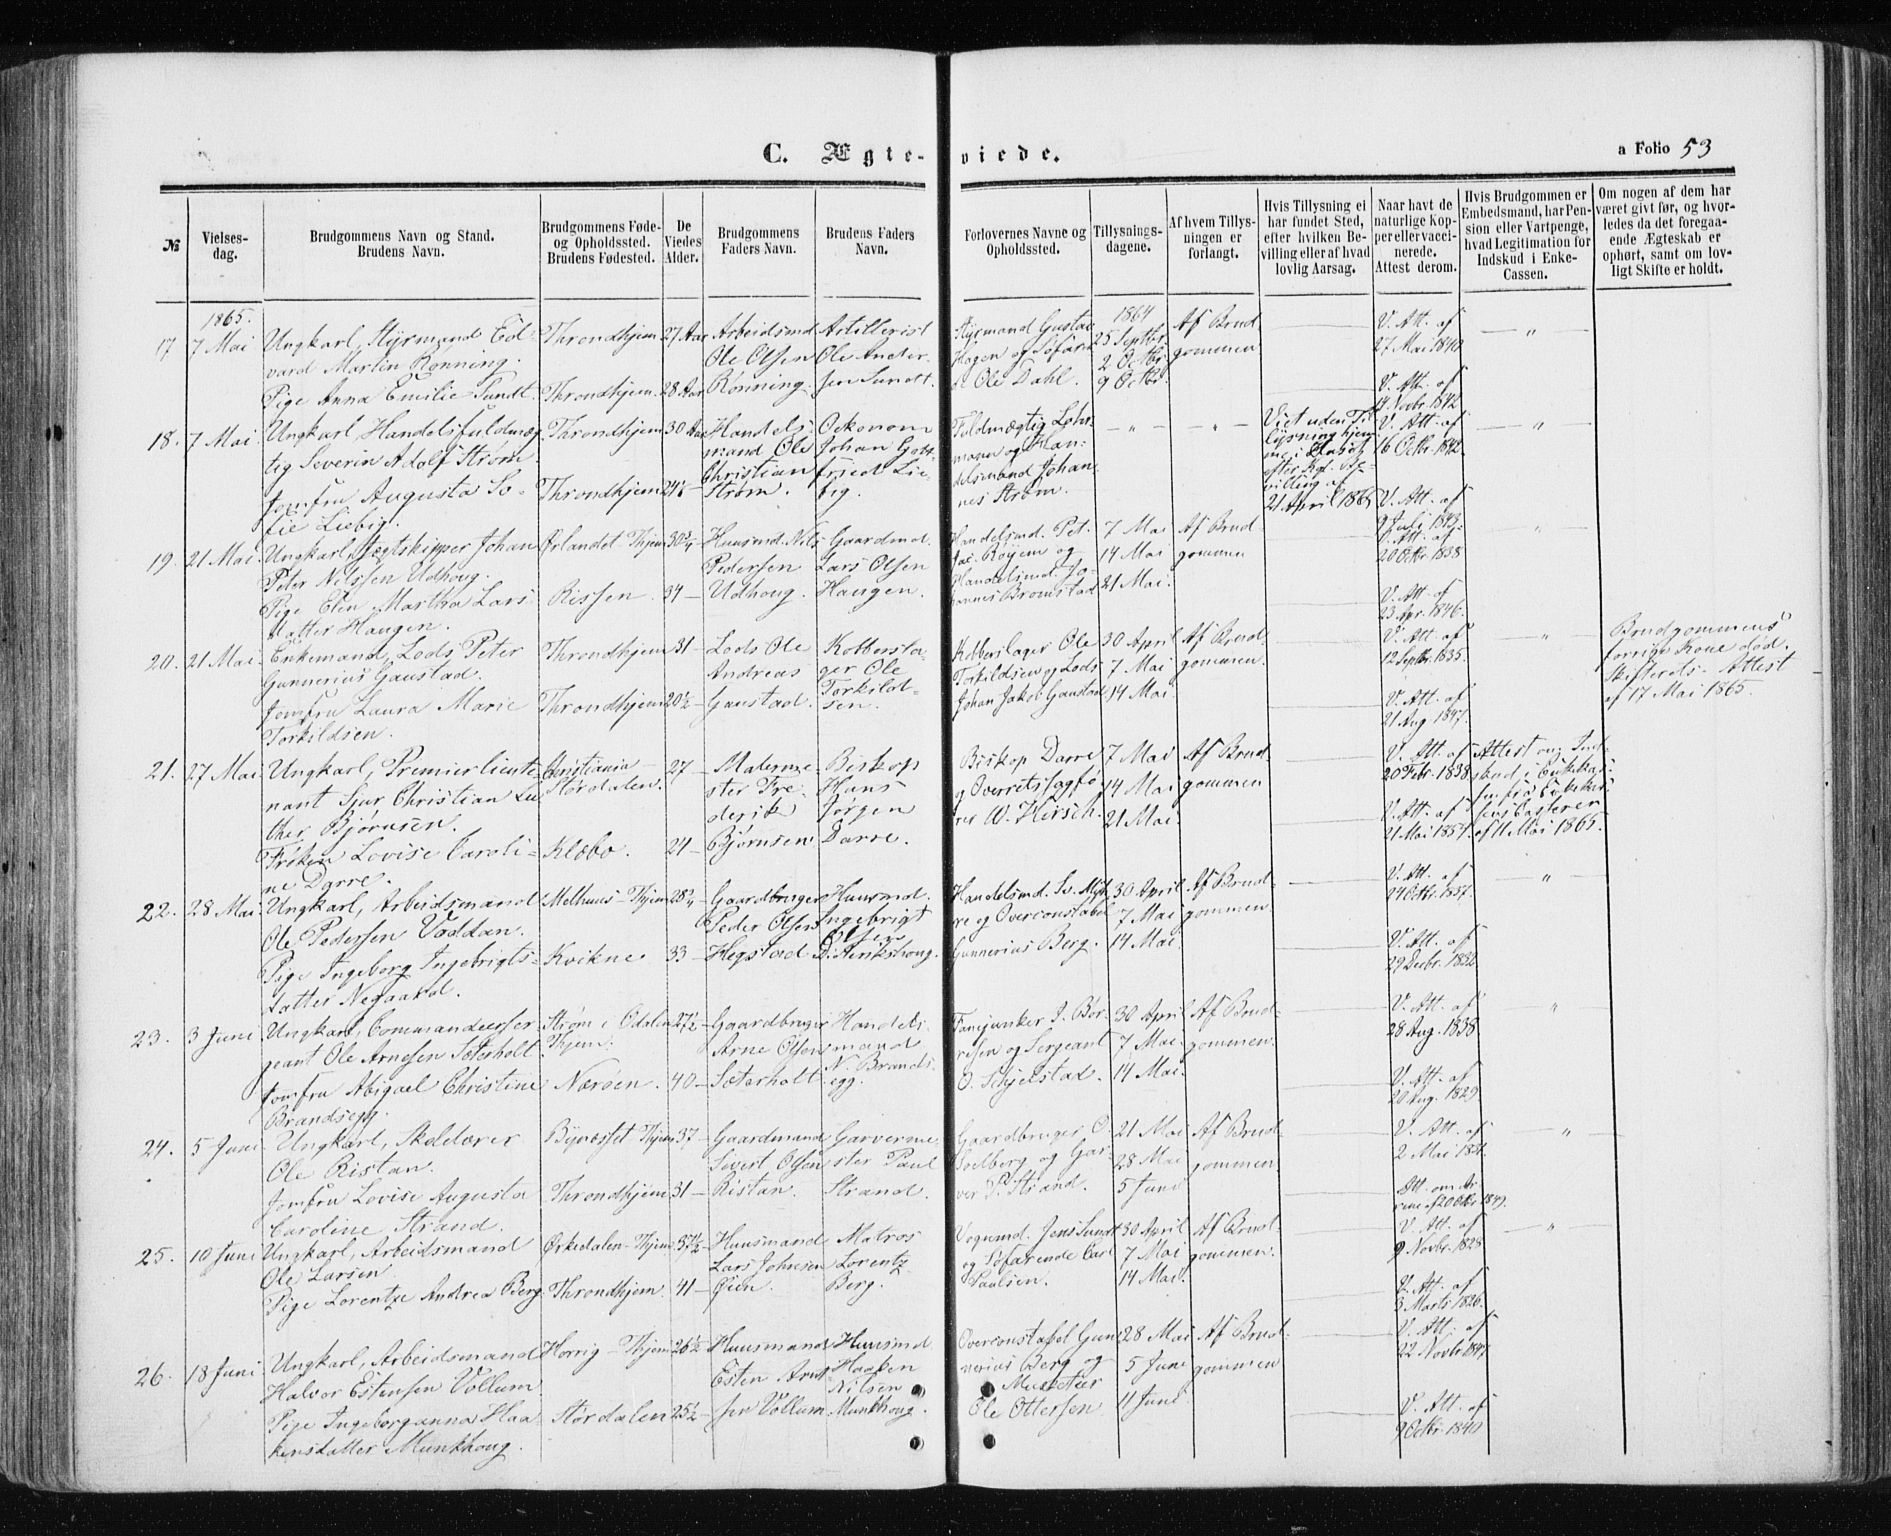 C. Ægte-viede.
a Folio 53
№
Vielses-dag.
Brudgommens Navn og Stand. Brudens Navn.
Brudgommens Føde- og Opholdssted. Brudens Fødested.
De Viedes Alder.
Brudgommens Faders Navn.
Brudens Faders Navn.
Forlovernes Navne og Opholdssted.
Tillysnings-dagene.
Af hvem Tillysningen er forlangt.
Hvis Tillysning ei har fundet Sted, efter hvilken Bevilling eller af hvad lovlig Aarsag.
Naar havt de naturlige Kopper eller vaccinerede. Attest derom.
Hvis Brudgommen er Embedsmand, har Pension eller Vartpenge, hvad Legitimation for Indskud i Enke-Cassen.
Om nogen af dem har været givt før, og hvorledes da det foregaaende Ægteskab er ophørt, samt om lovligt Skifte er holdt.
1865.
17 7 Mai
Ungkarl, Styrmand Ed-
vard Martin Rønning.
Pige Anna Emilie Sundt.
Throndhjem 27 Aar
Throndhjem. 28 Aar
Arbeidsmd
Ole Olsen
Rønning
Artillerist
Ole Ander-
sen Sundt.
Styrmand Gustav
Hagen og Søfaren
d. Ole Dahl.
1864
25 Septbr.
2 Octbr.
9 Octbr.
Af Brud-
gommen
V. Att. af
27 Mai 1840
V. Att. af
17 Novbr. 1842
18. 7 Mai
Ungkarl, Handelsfuldmæg-
tig Severin Adolf Strøm
Jomfru Augusta So-
fie Liebig.
Throndhjem 30 Aar
Throndhjem 21½
Handels-
mand Ole
Christian
Strøm.
Oekonom
Johan Gott-
fried Lie-
big.
Fuldmægtig Lehr-
mann og Han-
delsmand Johan-
nes Strøm.
Viet uden Til-
lysning hjem-
me i Huset
efter Kgl. Be-
villing af
21 April 1865
V. Att. af
16 Octbr. 1842
V. Att. af
9 Juli 1843.
19. 21 Mai.
Ungkarl, Jægtskipper Johan
Peter Nilssen Udhoug.
Pige Elen Martha Lars-
datter Haugen.
Ørlandet-Thjem 30¾
Rissen. 34
Huusmd. Nils
Pedersen
Udhoug.
Gaardmd.
Lars Olsen
Haugen.
Handelsmd. Pet.
Jac. Røyem og
Handelsmd. Jo-
hannes Bromstad
7 Mai
14 Mai
21 Mai.
Af Brud-
gommen
V. Att. af
20 Octbr. 1838
V. Att. af
23 Apr. 1846.
20. 21 Mai
Enkemand, Lods Peter
Gunnerius Gaustad.
Jomfru Laura Marie
Torkildsen.
Throndhjem 31
Throndhjem 20½
Lods Ole
Andreas
Gaustad.
Kobbersla-
ger Ole
Torkild-
sen.
Kobberslager Ole
Torkildsen og Lods
Johan Jakob Gaustad
30 April
7 Mai
14 Mai.
Af Brud-
gommen.
V. Att. af
12 Septbr. 1835.
V. Att. af
21 Aug. 1847.
Brudgommens
forrige Kone død.
Skifterets-Attest
af 17 Mai 1865.
21. 27 Mai
Ungkarl, Premierlieute-
nant Sjur Christian Lu-
ther Bjørnsen.
Frøken Lovise Caroli-
ne Darre.
Christiania-
Stordalen. 27
Klæbo. 24
Malerme-
ster Fre-
derik
Bjørnsen
Biskop
Hans
Jørgen
Darre.
Biskop Darre
og Overretssagfø-
rer W. Hirsch.
7 Mai
14 Mai
21 Mai.
Af Brud-
gommen
V. Att. af
20 Febr. 1838
V. Att. af
21 Mai 1857.
Attest om Ind-
skud i Enkekas-
sen fra Enkekas-
sens Casserer
af 11 Mai 1865.
22. 28 Mai
Ungkarl, Arbeidsmand
Ole Pedersen Vaddan.
Pige Ingeborg Ingebrigts-
datter Negaard.
Melhuus-Thjem 28¾
Kvikne 33
Gaardbruger
Peder Olsen
Hegstad
Huusmd.
Ingebrigt
Olsen
Diderikshoug.
Handelsmd. Sv. Myh-
re og Overconstabel
Gunnerius Berg.
30 April
7 Mai
14 Mai.
Af Brud-
gommen
V. Att. af
24 Octbr. 1837.
V. Att. af
29 Decbr. 1832
23. 3 Juni
Ungkarl, Commandeerser-
geant Ole Arnesen Sæterholt
Jomfru Abigael Christine
Brandsegg.
Strøm i Odalen
Thjem. 27½
Nærøen. 40
Gaardbruger
Arne Olsen
Sæterholt
Handels-
mand
N. Brands-
egg.
Fanejunker J. Bør-
resen og Sergeant
O. Schjelstad.
30 April
7 Mai
14 Mai.
Af Brud-
gommen.
V. Att. af
28 Aug. 1838
V. Att. af
20 Aug. 1829
24. 5 Juni
Ungkarl, Skolelærer
Ole Ristan.
Jomfru Lovise Augusta
Caroline Strand.
Bynæsset Thjem 37
Throndhjem 31
Gaardmand
Sivert Olsen
Ristan.
Garverme-
ster Paul
Strand.
Gaardbruger O.
Solberg og Gar-
ver P. Strand.
21 Mai
28 Mai
5 Juni
Af Brud-
gommen.
V. Att. af
2 Mai 1831.
25. 10 Juni
Ungkarl, Arbeidsmand
Ole Larsen
Pige Lorentze Andrea Berg
Ørkedalen-Thjem 37½
Throndhjem. 41
Huusmand
Lars Johnsen
Øien.
Matros
Lorentz
Berg.
Vognmd. Jens Sundt
og Søfarende Carl
Paulsen.
30 April
7 Mai
14 Mai.
Af Brud-
gommen.
V. Att. af
9 Novbr. 1828
V. Att. af
3 Marts 1826.
26. 18 Juni
Ungkarl, Arbeidsmand
Halvor Estensen Vollum
Pige Ingeborganna Haa-
kensdatter Munkhoug.
Horrig-Thjem 26½
Stordalen 25½
Huusmand
Esten Arnt-
sen Vollum
Huusmd
Haaken
Nilsen
Munkhoug.
Overconstabel Gun-
nerius Berg og
Musketeer
Ole Ottersen
28 Mai
5 June
11 June
Af Brud-
gommen
V. Att. af
22 Novbr. 1847
V. Att. af
9 Octbr. 1840